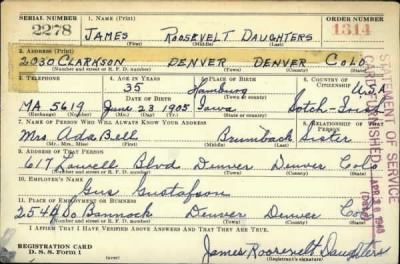 SERIAL NUMBER 1. NAME (Print) ORDER NUMBER
2278 JAMES ROOSEVELT DAUGHTERS 1314
(First) (Middle) (Last)
2. ADDRESS (Print)
2030 CLARKSON DENVER DENVER COLO
(Number and street or R. F. D. number) (Town) (County) (State)
3. TELEPHONE 4. AGE IN YEARS 5. PLACE OF BIRTH 6. COUNTRY OF CITIZENSHIP
35 Hamburg U.S.A
DATE OF BIRTH
MA 5619 June 23 1905 Iowa Scotch-Irish
(Exchange) (Number) (Mo.) (Day) (Yr.) (State or country)
7. NAME OF PERSON WHO WILL ALWAYS KNOW YOUR ADDRESS 8. RELATIONSHIP OF THAT PERSON
Mrs Ada Bell Brumback Sister
(Mr., Mrs., Miss) (First) (Middle) (Last)
9. ADDRESS OF THAT PERSON
617 Lowell Blvd Denver Denver Colo
(Number and street or R. F. D. number) (Town) (County) (State)
10. EMPLOYER'S NAME
Gus Gustafson
11. PLACE OF EMPLOYMENT OR BUSINESS
2544 So Bannock Denver Denver Colo
(Number and street or R. F. D. number) (Town) (County) (State)
I AFFIRM THAT I HAVE VERIFIED ABOVE ANSWERS AND THAT THEY ARE TRUE.
REGISTRATION CARD
D. S. S. FORM 1
James Roosevelt Daughters
(Registrant's signature)
STATEMENT OF SERVICE